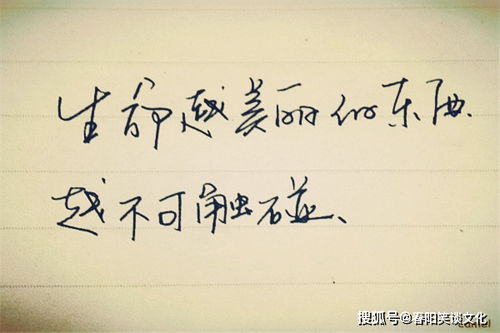 生命越美丽的东西、
越不可触碰、
搜狐号@春阳笑谈文化